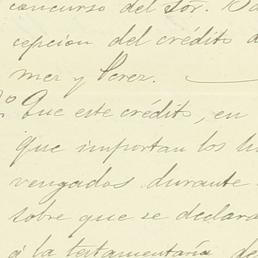 concurso del Sor. D
cepcion del crédito d
mer y Perez.
Que este crédito, en
que importan los
vengados durante
sobre que se declara
á la testamentaría de